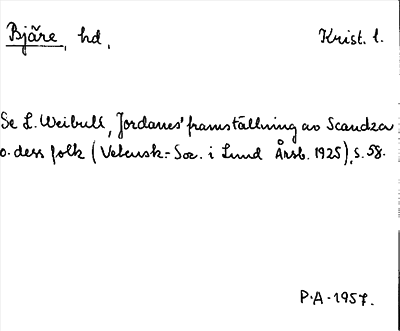 Bjäre, hd, Krist. l.
Se L. Weibull, Jordanes' framställning av Scandza
o. dess folk (Vetensk.-Soc. i Lund Årsb. 1925), s. 58.
P.A. 1957.